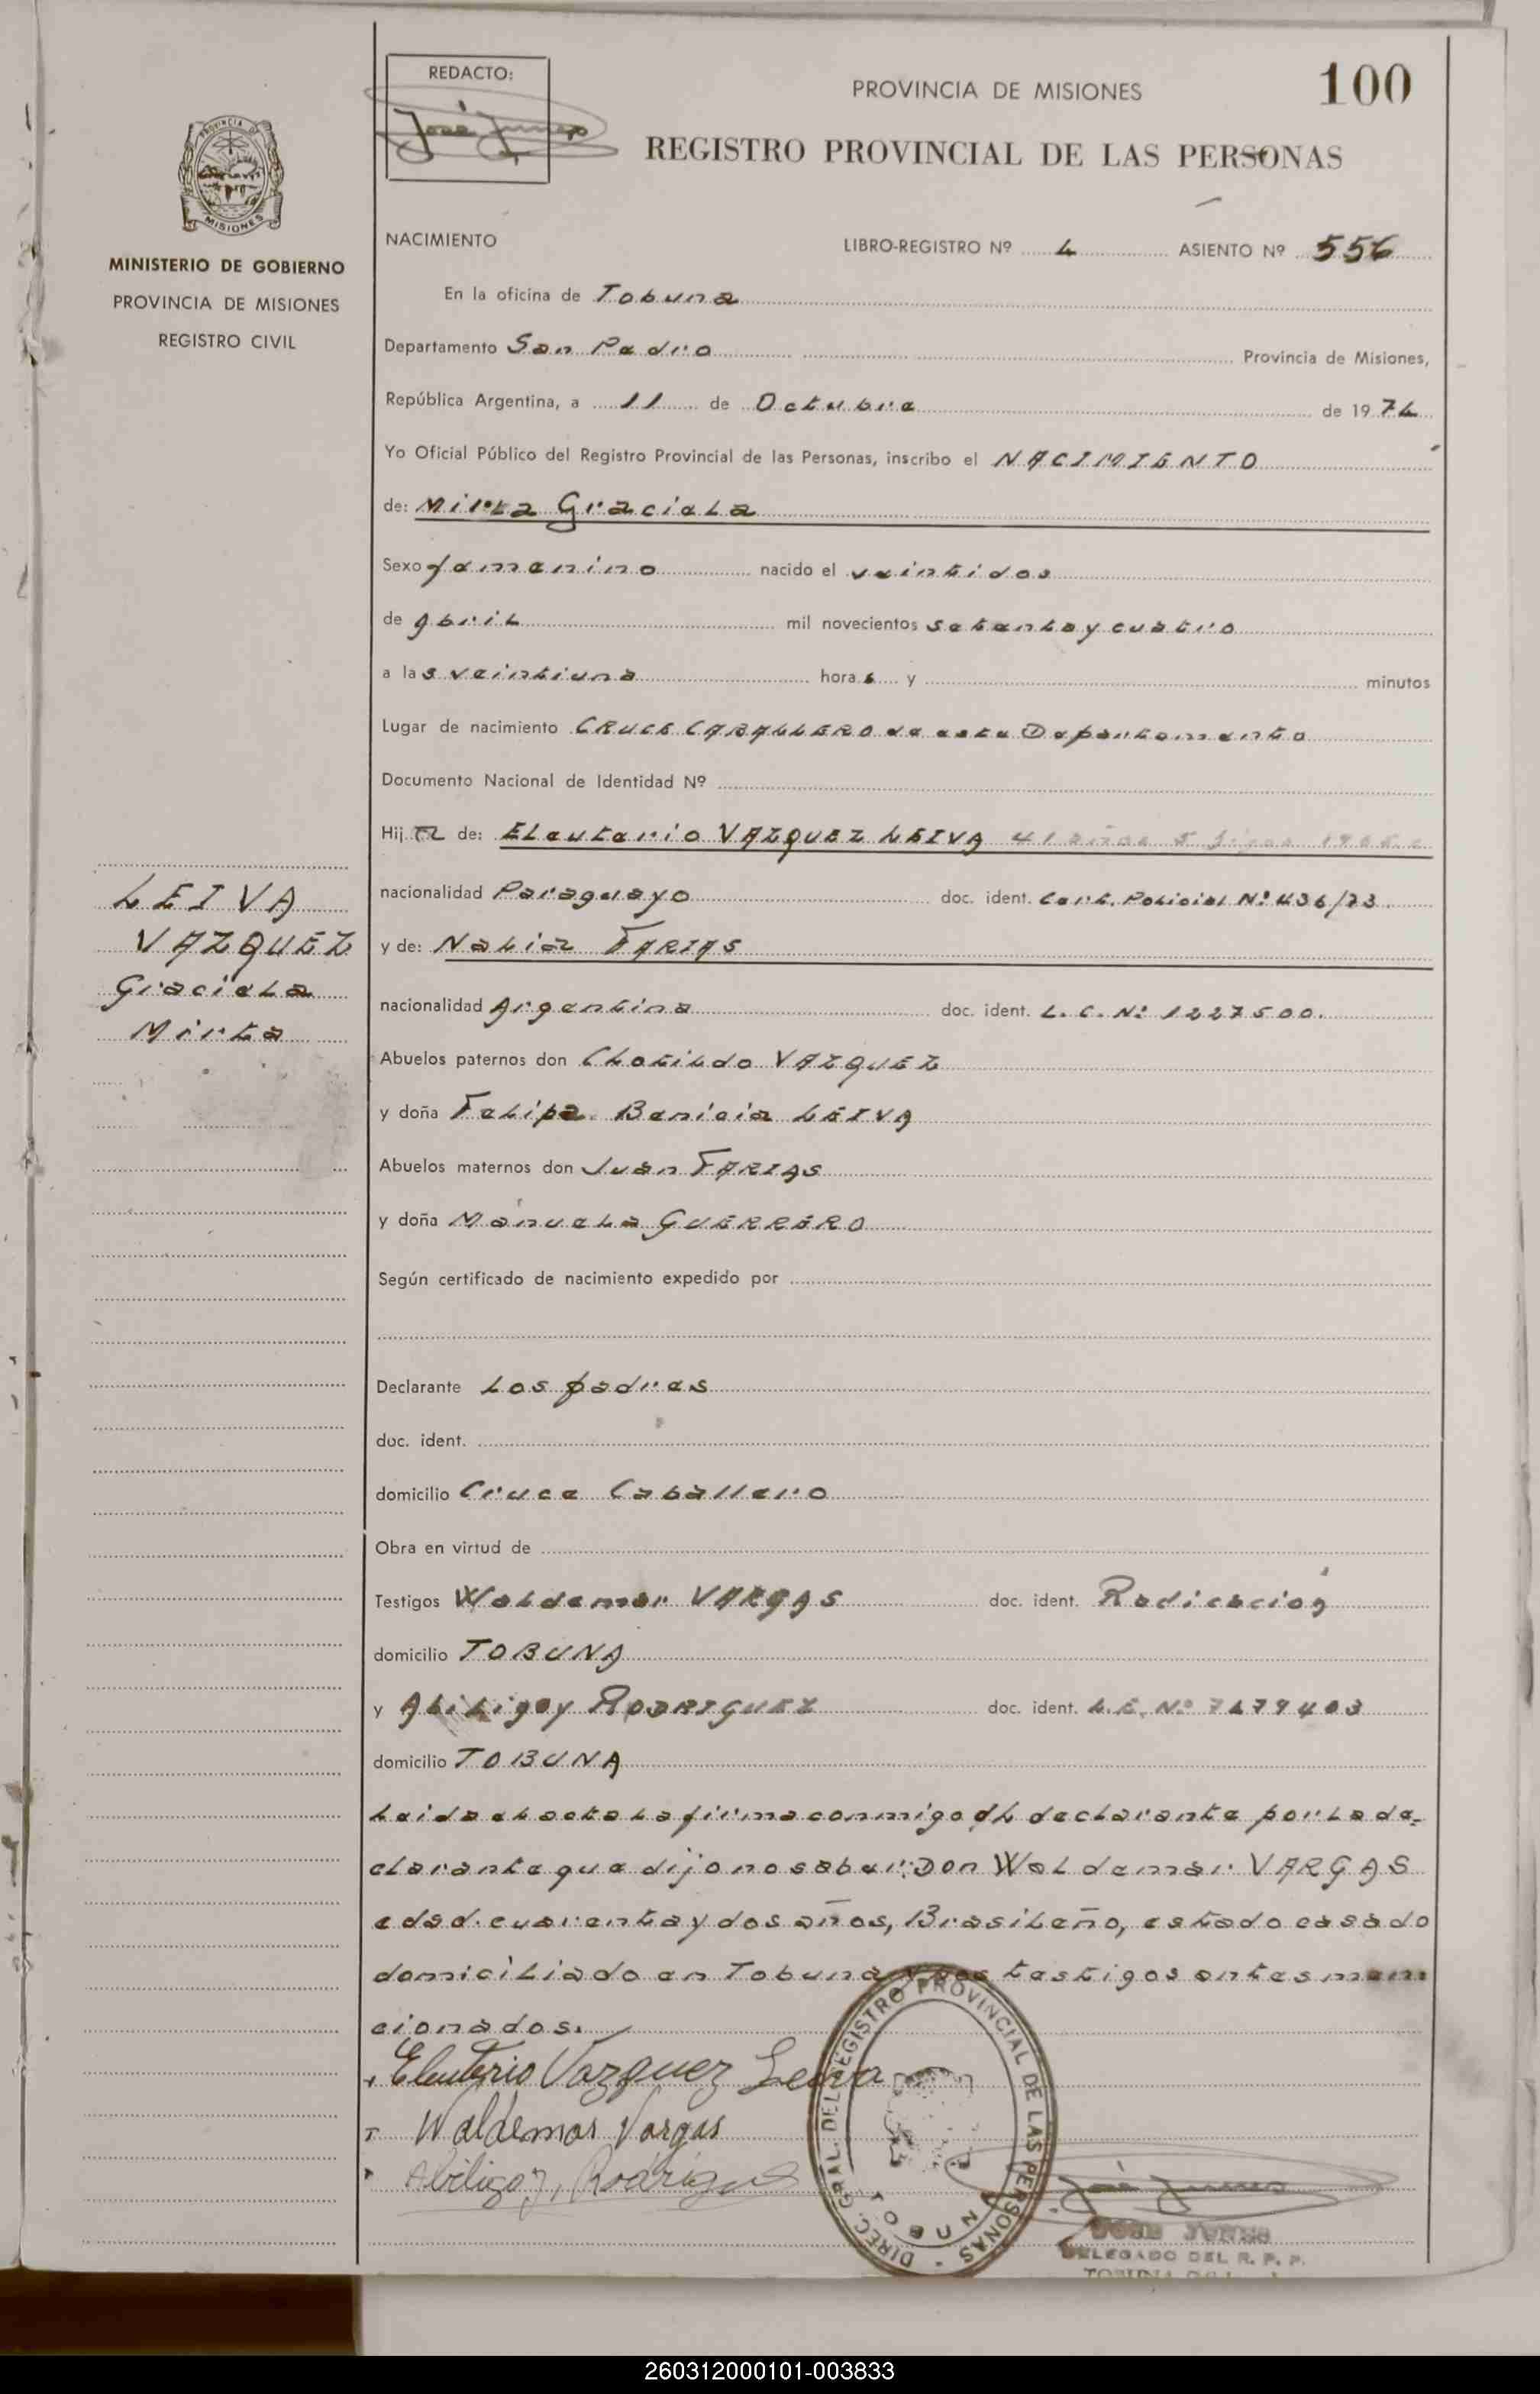 REDACTO:
PROVINCIA DE MISIONES
100
REGISTRO PROVINCIAL DE LAS PERSONAS
PROVINCIA DE
MISIONES
MINISTERIO DE GOBIERNO
PROVINCIA DE MISIONES
REGISTRO CIVIL
NACIMIENTO LIBRO-REGISTRO Nº 4 ASIENTO Nº 556
En la oficina de Tobuna
Departamento San Pedro Provincia de Misiones,
República Argentina, a 11 de Octubre de 1974
Yo Oficial Público del Registro Provincial de las Personas, inscribo el NACIMIENTO
de: Mirta Graciela
Sexo femenino nacido el veintidos
de Abril mil novecientos setenta y cuatro
a las veintiuna horas y minutos
Lugar de nacimiento CRUCE CABALLERO de este Departamento
Documento Nacional de Identidad Nº
Hija de: Eleuterio VAZQUEZ LEIVA 41 años
nacionalidad Paraguayo doc. ident. Cert. Policial Nº 436/73.
y de: Nelia FARIAS
nacionalidad Argentina doc. ident. L. C. Nº 1227500.
LEIVA
VAZQUEZ
Graciela
Mirta
Abuelos paternos don Clotildo VAZQUEZ
y doña Felipa Benicia LEIVA
Abuelos maternos don Juan FARIAS
y doña Manuela GUERRERO
Según certificado de nacimiento expedido por
Declarante Los padres
doc. ident.
domicilio Cruce Caballero
Obra en virtud de
Testigos Waldemar VARGAS doc. ident. Radicación
domicilio TOBUNA
y Abiligoy RODRIGUEZ doc. ident. L.E. Nº 7479403
domicilio TOBUNA
Leida el acta la firma conmigo el declarante por la de-
clarante que dijo no saber: Don Waldemar VARGAS
edad cuarenta y dos años, Brasileño, estado casado
domiciliado en Tobuna y los testigos antes men
cionados.
Eleuterio Vazquez Leiva
Waldemar Vargas
Abiligoy Rodriguez
DIREC. GRAL. DEL REGISTRO PROVINCIAL DE LAS PERSONAS -
TOBUNA
DELEGADO DEL R. P. P.
260312000101-003833